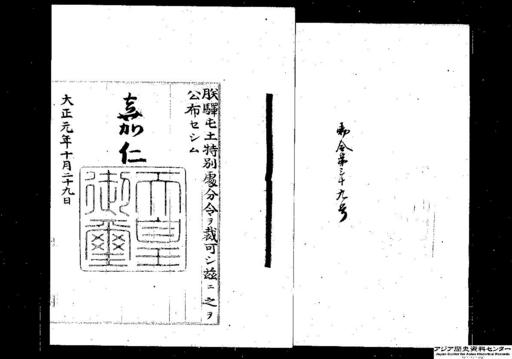 勅令第三十九号
朕驛屯土特別處分令ヲ裁可シ茲ニ之ヲ
公布セシム
嘉仁
天皇
御璽
大正元年十月二十九日
アジア歴史資料センター
Japan Center for Asian Historical Records